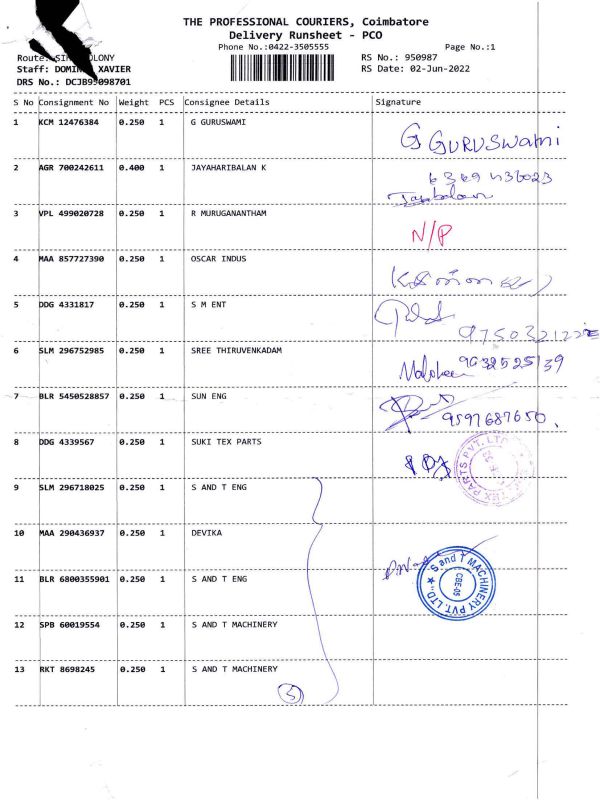 THE PROFESSIONAL COURIERS, Coimbatore
Delivery Runsheet - PCO
Phone No.:0422-3505555
Page No.:1
Route: OLONY
RS No.: 950987
Staff: XAVIER
RS Date: 02-Jun-2022
DRS No.: DCJB95098701
S No Consignment No Weight PCS Consignee Details Signature
1 KCM 12476384 0.250 1 G GURUSWAMI
G GURUSWAMI
2 AGR 700242611 0.400 1 JAYAHARIBALAN K
3 VPL 499020728 0.250 1 R MURUGANANTHAM
N/P
4 MAA 857727390 0.250 1 OSCAR INDUS
5 DDG 4331817 0.250 1 S M ENT
6 SLM 296752985 0.250 1 SREE THIRUVENKADAM
9632525139
7 BLR 5450528857 0.250 1 SUN ENG
9597687650.
8 DDG 4339567 0.250 1 SUKI TEX PARTS
TEX PARTS PVT. LTD
9 SLM 296718025 0.250 1 S AND T ENG
10 MAA 290436937 0.250 1 DEVIKA
11 BLR 6800355901 0.250 1 S AND T ENG
S and T MACHINERY PVT. LTD.
CBE-05
12 SPB 60019554 0.250 1 S AND T MACHINERY
13 RKT 8698245 0.250 1 S AND T MACHINERY
5